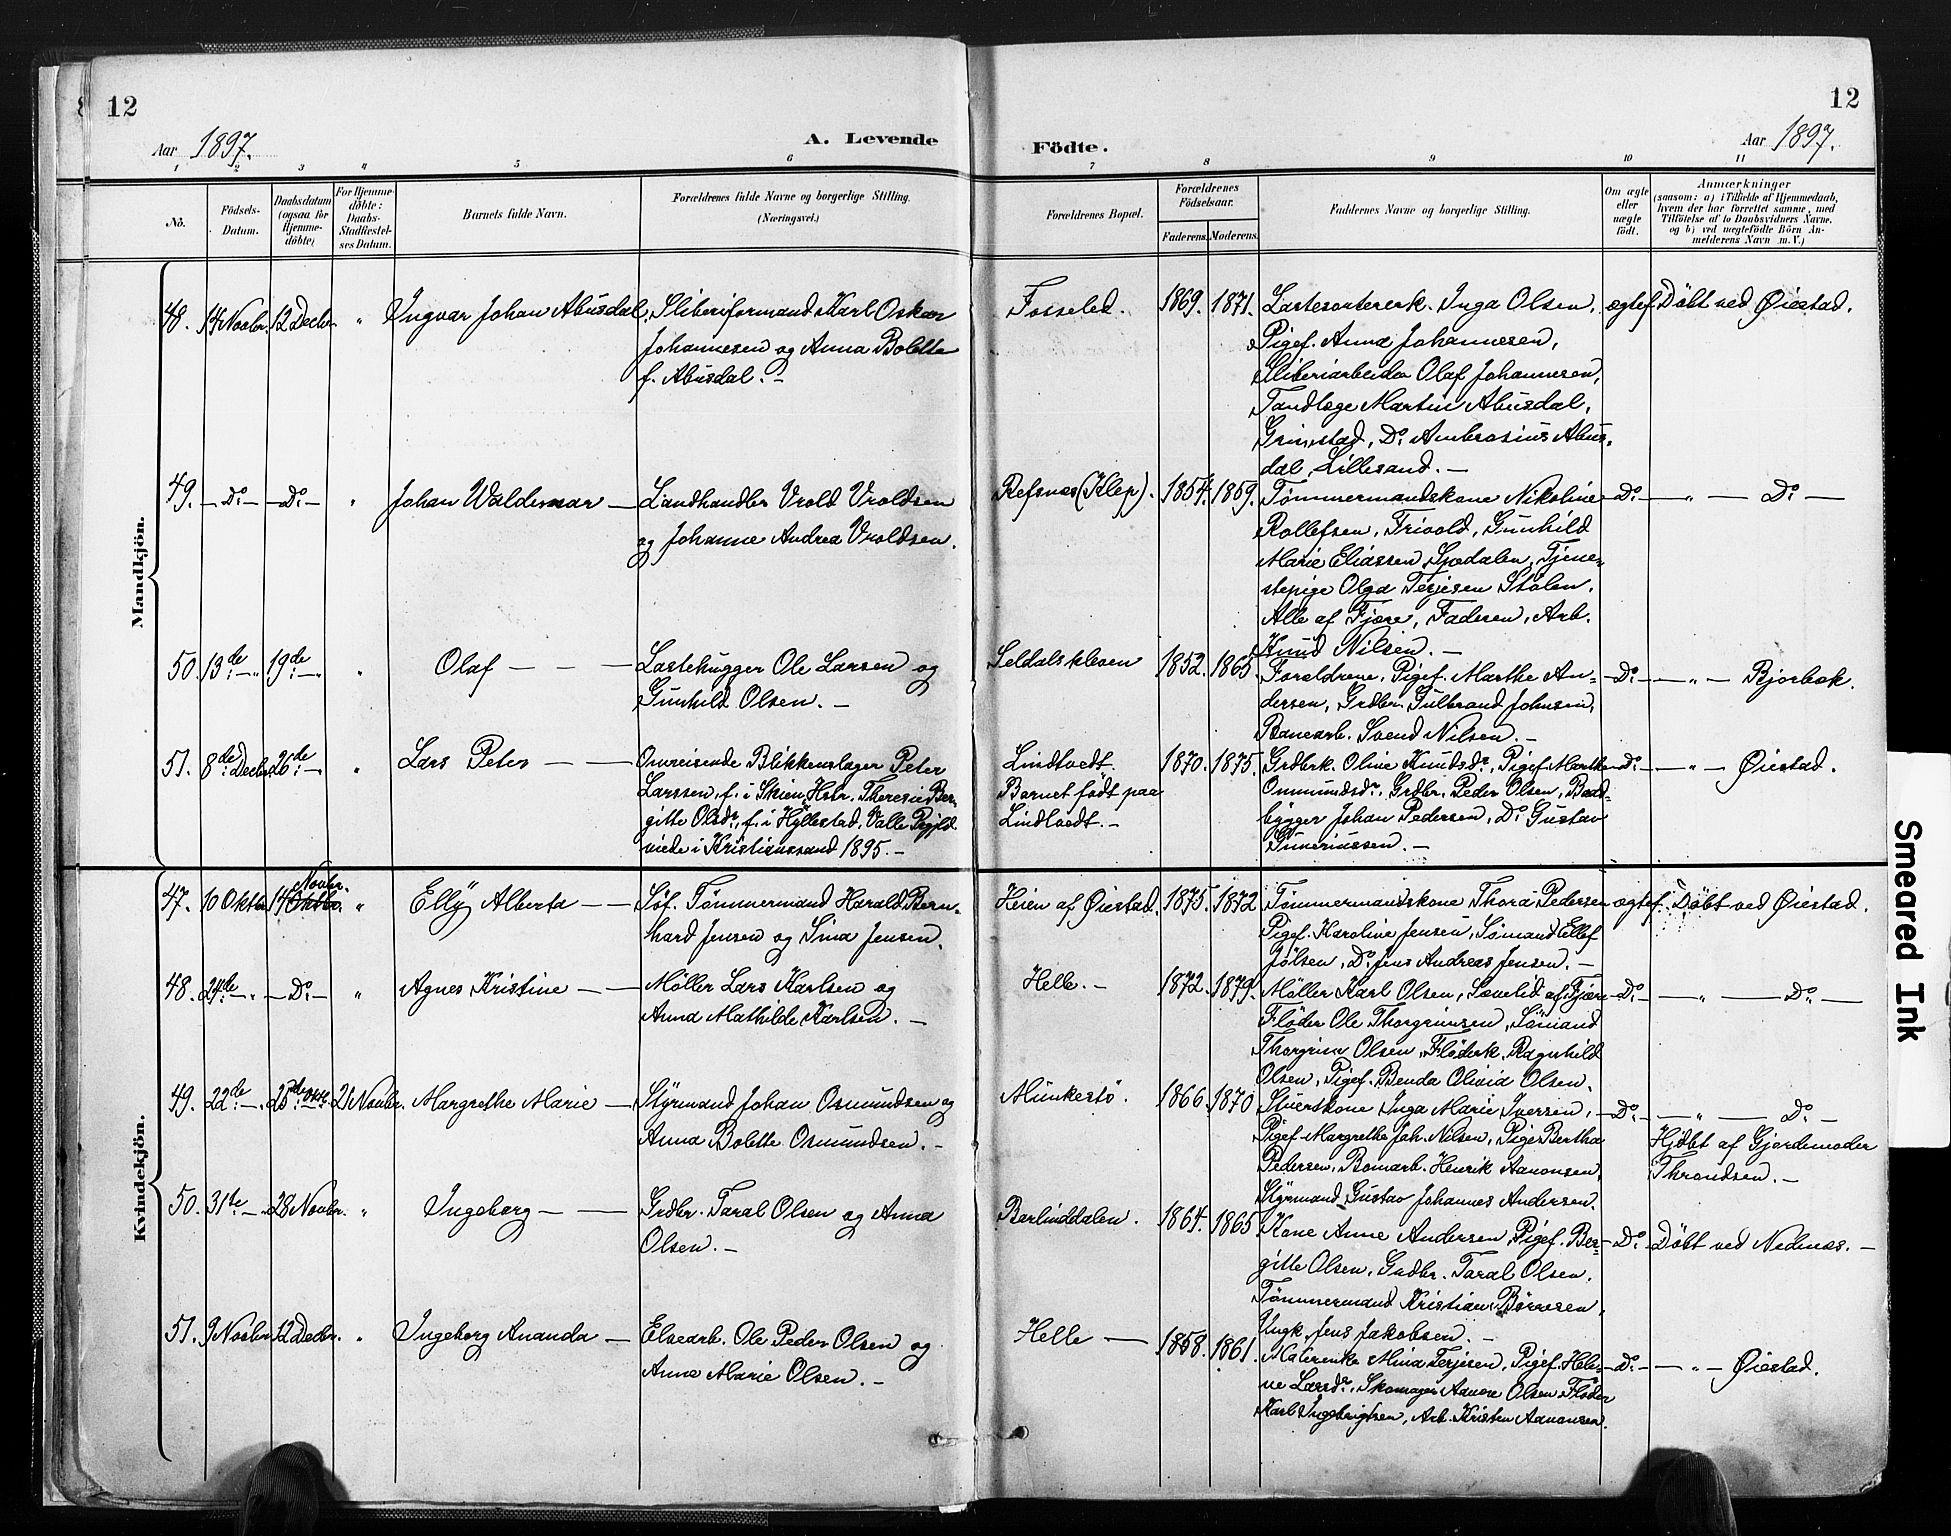 12
Aar 1897.
A. Levende
Födte.
12
Aar 1897.
1 2 3 " 5 6
7 8 9 10 11
No.
Födsels-Datum.
Daabsdatum (ogsaa for Hjemmedöbte)
For Hjemmedöbte: Daabs-Stadfæstelses Datum.
Barnets fulde Navn.
Forældrenes fulde Navne og borgerlige Stilling. (Næringsvei.)
Forældrenes Bopæl.
Forældrenes Födselsaar.
Faderens. Moderens.
Faddernes Navne og borgerlige Stilling.
Om ægte eller uægte födt.
Anmærkninger
(saasom: a) i Tilfælde af Hjemmedaab,
hvem der har forrettet samme, med
Tilföielse af to Daabsvidners Navne.
og b) ved uægtefödte Börn An-
melderens Navn m. V.)
Mandkjön.
48. 14 Novbr. 12 Decbr. " Ingvar Johan Abusdal. Sliberiformand Karl Oskar
Johannesen og Anna Bolette
f. Abusdal. –
Fosselid. 1869. 1871.
Inga Olsen,
Pigef. Anna Johannesen,
Sliberiarbeider Olaf Johannesen,
Tandlæge Martin Abusdal,
Grimstad, Do. Ambrosius Abus-
dal, Lillesand. –
ægtef. Döbt ved Øiestad.
49. – Do. – – Do. – " Johan Waldemar – Landhandler Vrold Vroldsen
og Johanne Andrea Vroldsen.
Refsnes (Klep). 1854. 1859.
Tømmermandskone Nikoline
Rollefsen, Frivold, Gunhild
Marie Eliassen, Tjene-
stepige Olga Terjesen Stölen,
Alle af Fjære, Faderen, Arb.
Knud Nilsen. –
– Do. – – " – Do. –
50. 13de – " 19de – " " Olaf – – – Lastehugger Ole Larsen og
Gunhild Olsen. –
1852. 1865.
Forældrene, Pigef. Marthe An-
dersen, Grdbr. Gulbrand Johnsen,
Banearb. Svend Nilsen. –
– Do. – – " – Bjorbæk.
51. 8de Decbr. 26de – " Lars Peter – – Omreisende Blikkenslager Peter
Larssen, f. i Skien, Hstr. Theresie Ber-
gitte Olsdr., f. i Hyllestad, Valle Prgjld.
viede i Kristianssand 1895. –
Lindtvedt.
Barnet födt paa
Lindtvedt. –
1870. 1875.
Grdbrk. Oline Knudsdr., Pigef. Marthe
Ommundsdr., Grdbr. Peder Olsen, Baad-
bygger Johan Pedersen, Do. Gustav
Guneriussen. –
Do. – – " – Øiestad.
Kvindekjön.
47. 10 Oktbr. 14 Oktbr. Novbr. " Elly Alberta – – Søf. Tømmermand Harald Bern-
hard Jensen og Sina Jensen.
Heien af Øiestad. 1875. 1872
Tømmermandskone Thora Pedersen
Pigef. Karoline Jensen, Sømand Ellef
Jölsen, Do. Jens Andreas Jensen. –
ægtef. Döbt ved Øiestad.
48. 24de – " – Do. – " Agnes Kristine – – Møller Lars Karlsen og
Anna Mathilde Karlsen. –
Helle. – 1872. 1879.
Møller Karl Olsen, af Fjære
Fløder Ole Thorgrimsen, Sömand
Thorgrim Olsen, Fløderk. Ragnhild
Olsen, Pigef. Benda Olivia Olsen.
– Do. – – " – Do. –
49. 22de – " 25de Oktbr. 21 Novbr. Margrethe Marie – Styrmand Johan Osmundsen og
Anna Bolette Osmundsen. –
Munkestö. 1866. 1870
Stuertskone Inga Marie Iversen,
Pigef. Margrethe Joh. Nilsen, Pige Bertha
Pedersen, Bomarb. Henrik Aanonsen,
Styrmand Gustav Johannes Andersen.
– Do. – – " – Do. –
Hjdbt af Gjordemoder
Throndsen. –
50. 31te – 28 Novbr. " Ingeborg – – Grdbr. Taral Olsen og Anna
Olsen. –
Barlinddalen. 1864. 1865
Kone Anne Andersen, Pigef. Ber-
gitte Olsen, Grdbr. Taral Olsen,
Tømmermand Kristian Børresen,
Ungk. Jens Jakobsen. –
– Do. Döbt ved Nedenæs. –
51. 9 Novbr. 12 Decbr. " Ingeborg Ananda – Elvearb. Ole Peder Olsen og
Anne Marie Olsen. –
Helle – 1858. 1861.
Mina Terjesen, Pigef. Hele-
ne Larsdr., Skomager Aanon Olsen, Fløder
Karl Ingebrigtsen, Arb. Kristen Aanonsen.
– Do. – – " – Øiestad.
Smeared Ink